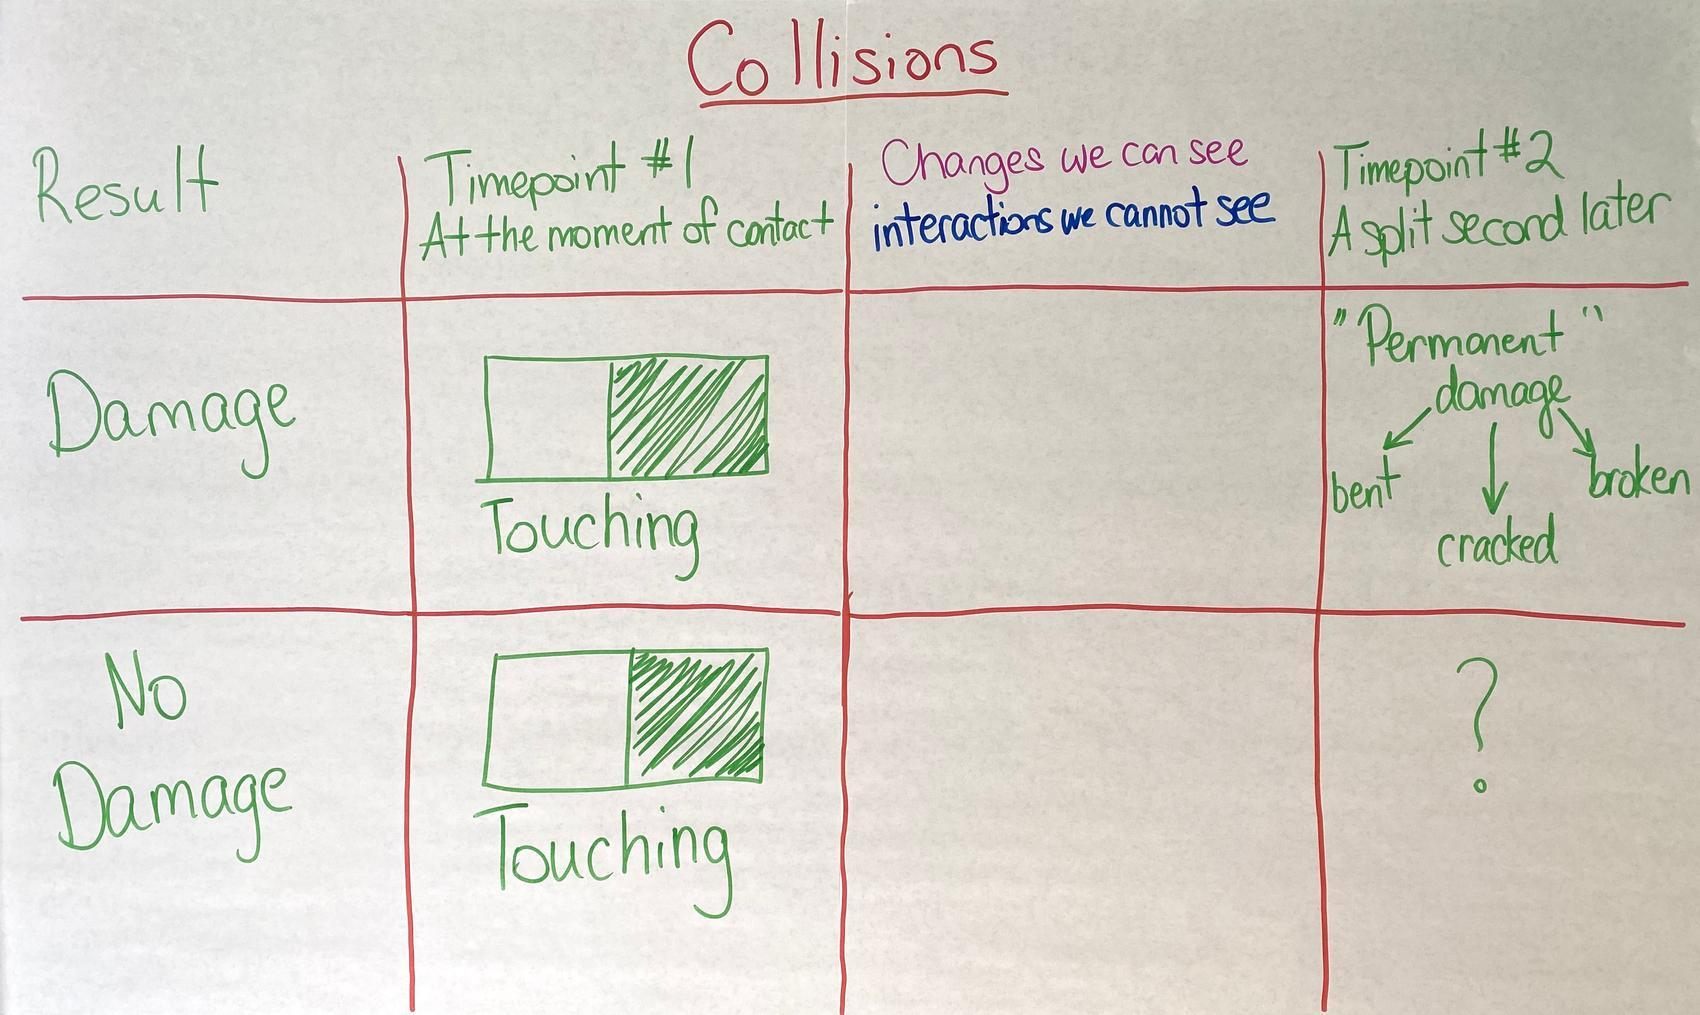 Collisions
Result
Timepoint #1
At the moment of contact
Changes we can see
interactions we cannot see
Timepoint #2
A split second later
Damage
Touching
"Permanent"
damage
bent
cracked
broken
No
Damage
Touching
?